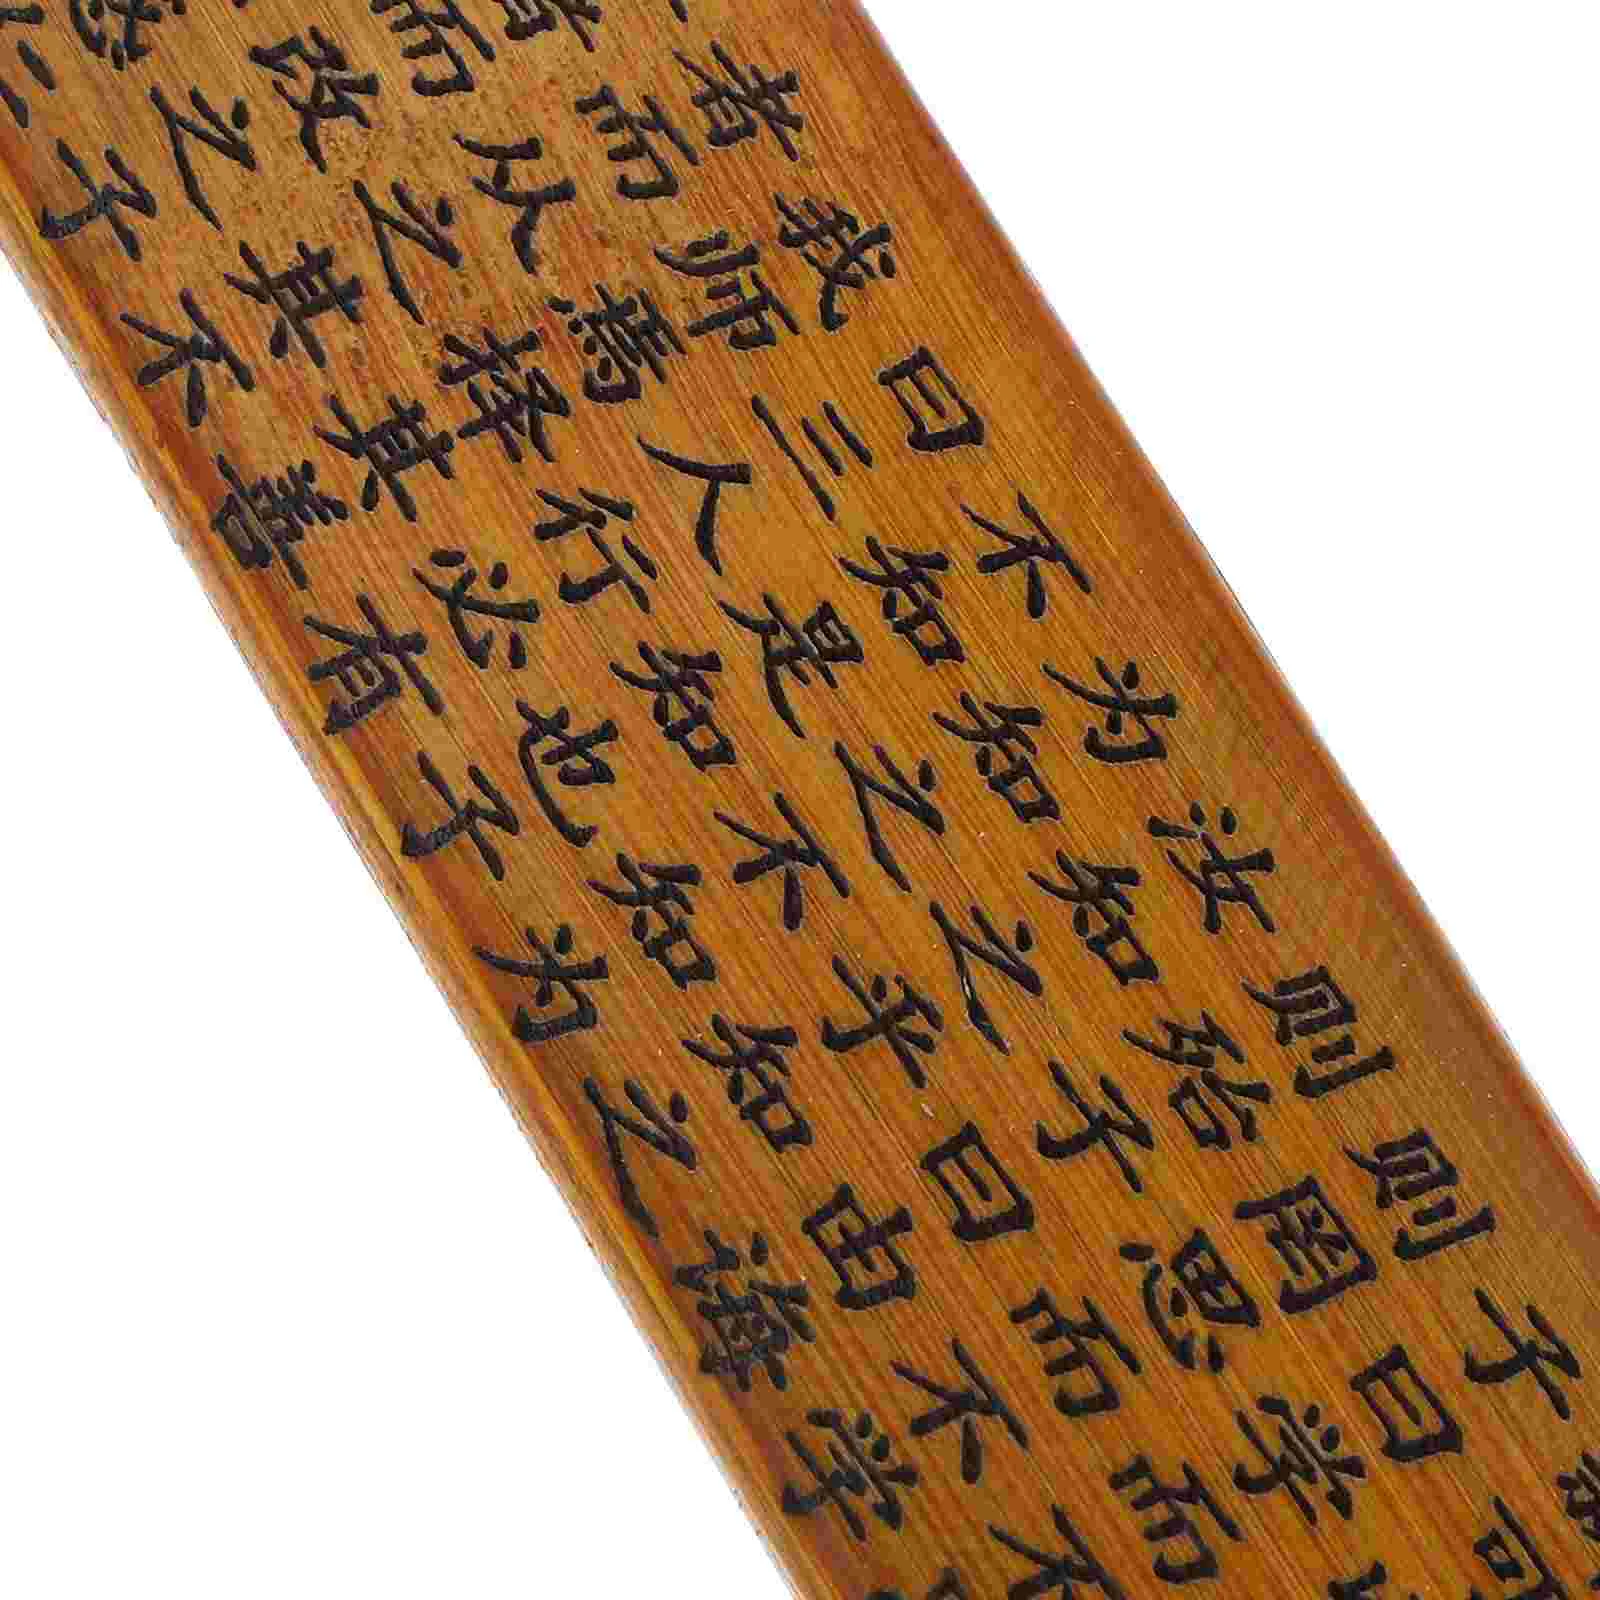 可
子曰学而不
则罔思而不学
则殆子曰由诲
汝知之乎知之
为知之不知为
不知是知也子
曰三人行必有
我师焉择其善
者而从之其不
者而改之子